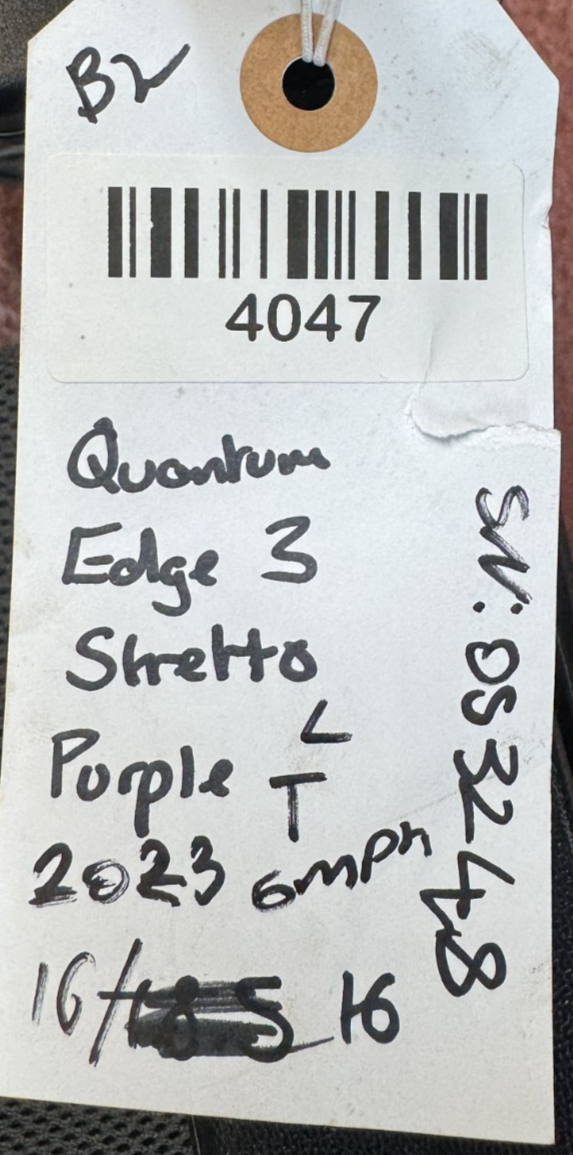 B2
4047
Quantum
Edge 3
Stretto
Purple
L
T
2023 6mph
16/ 16
SN: 0S32448